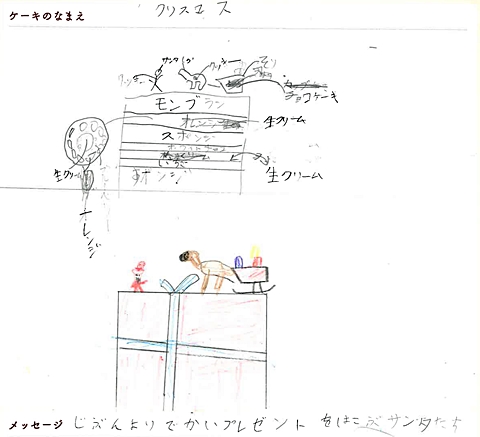 ケーキのなまえ
クリスエス
サンタ
クッキー
そり
クッキー
チョコケーキ
モンブラン
オレンジ
生クリーム
スポンジ
ホワイトチョコ
いちご
生クリーム
スポンジ
生クリーム
オレンジ
メッセージ じぶんよりでかいプレゼントをはこぶサンタたち